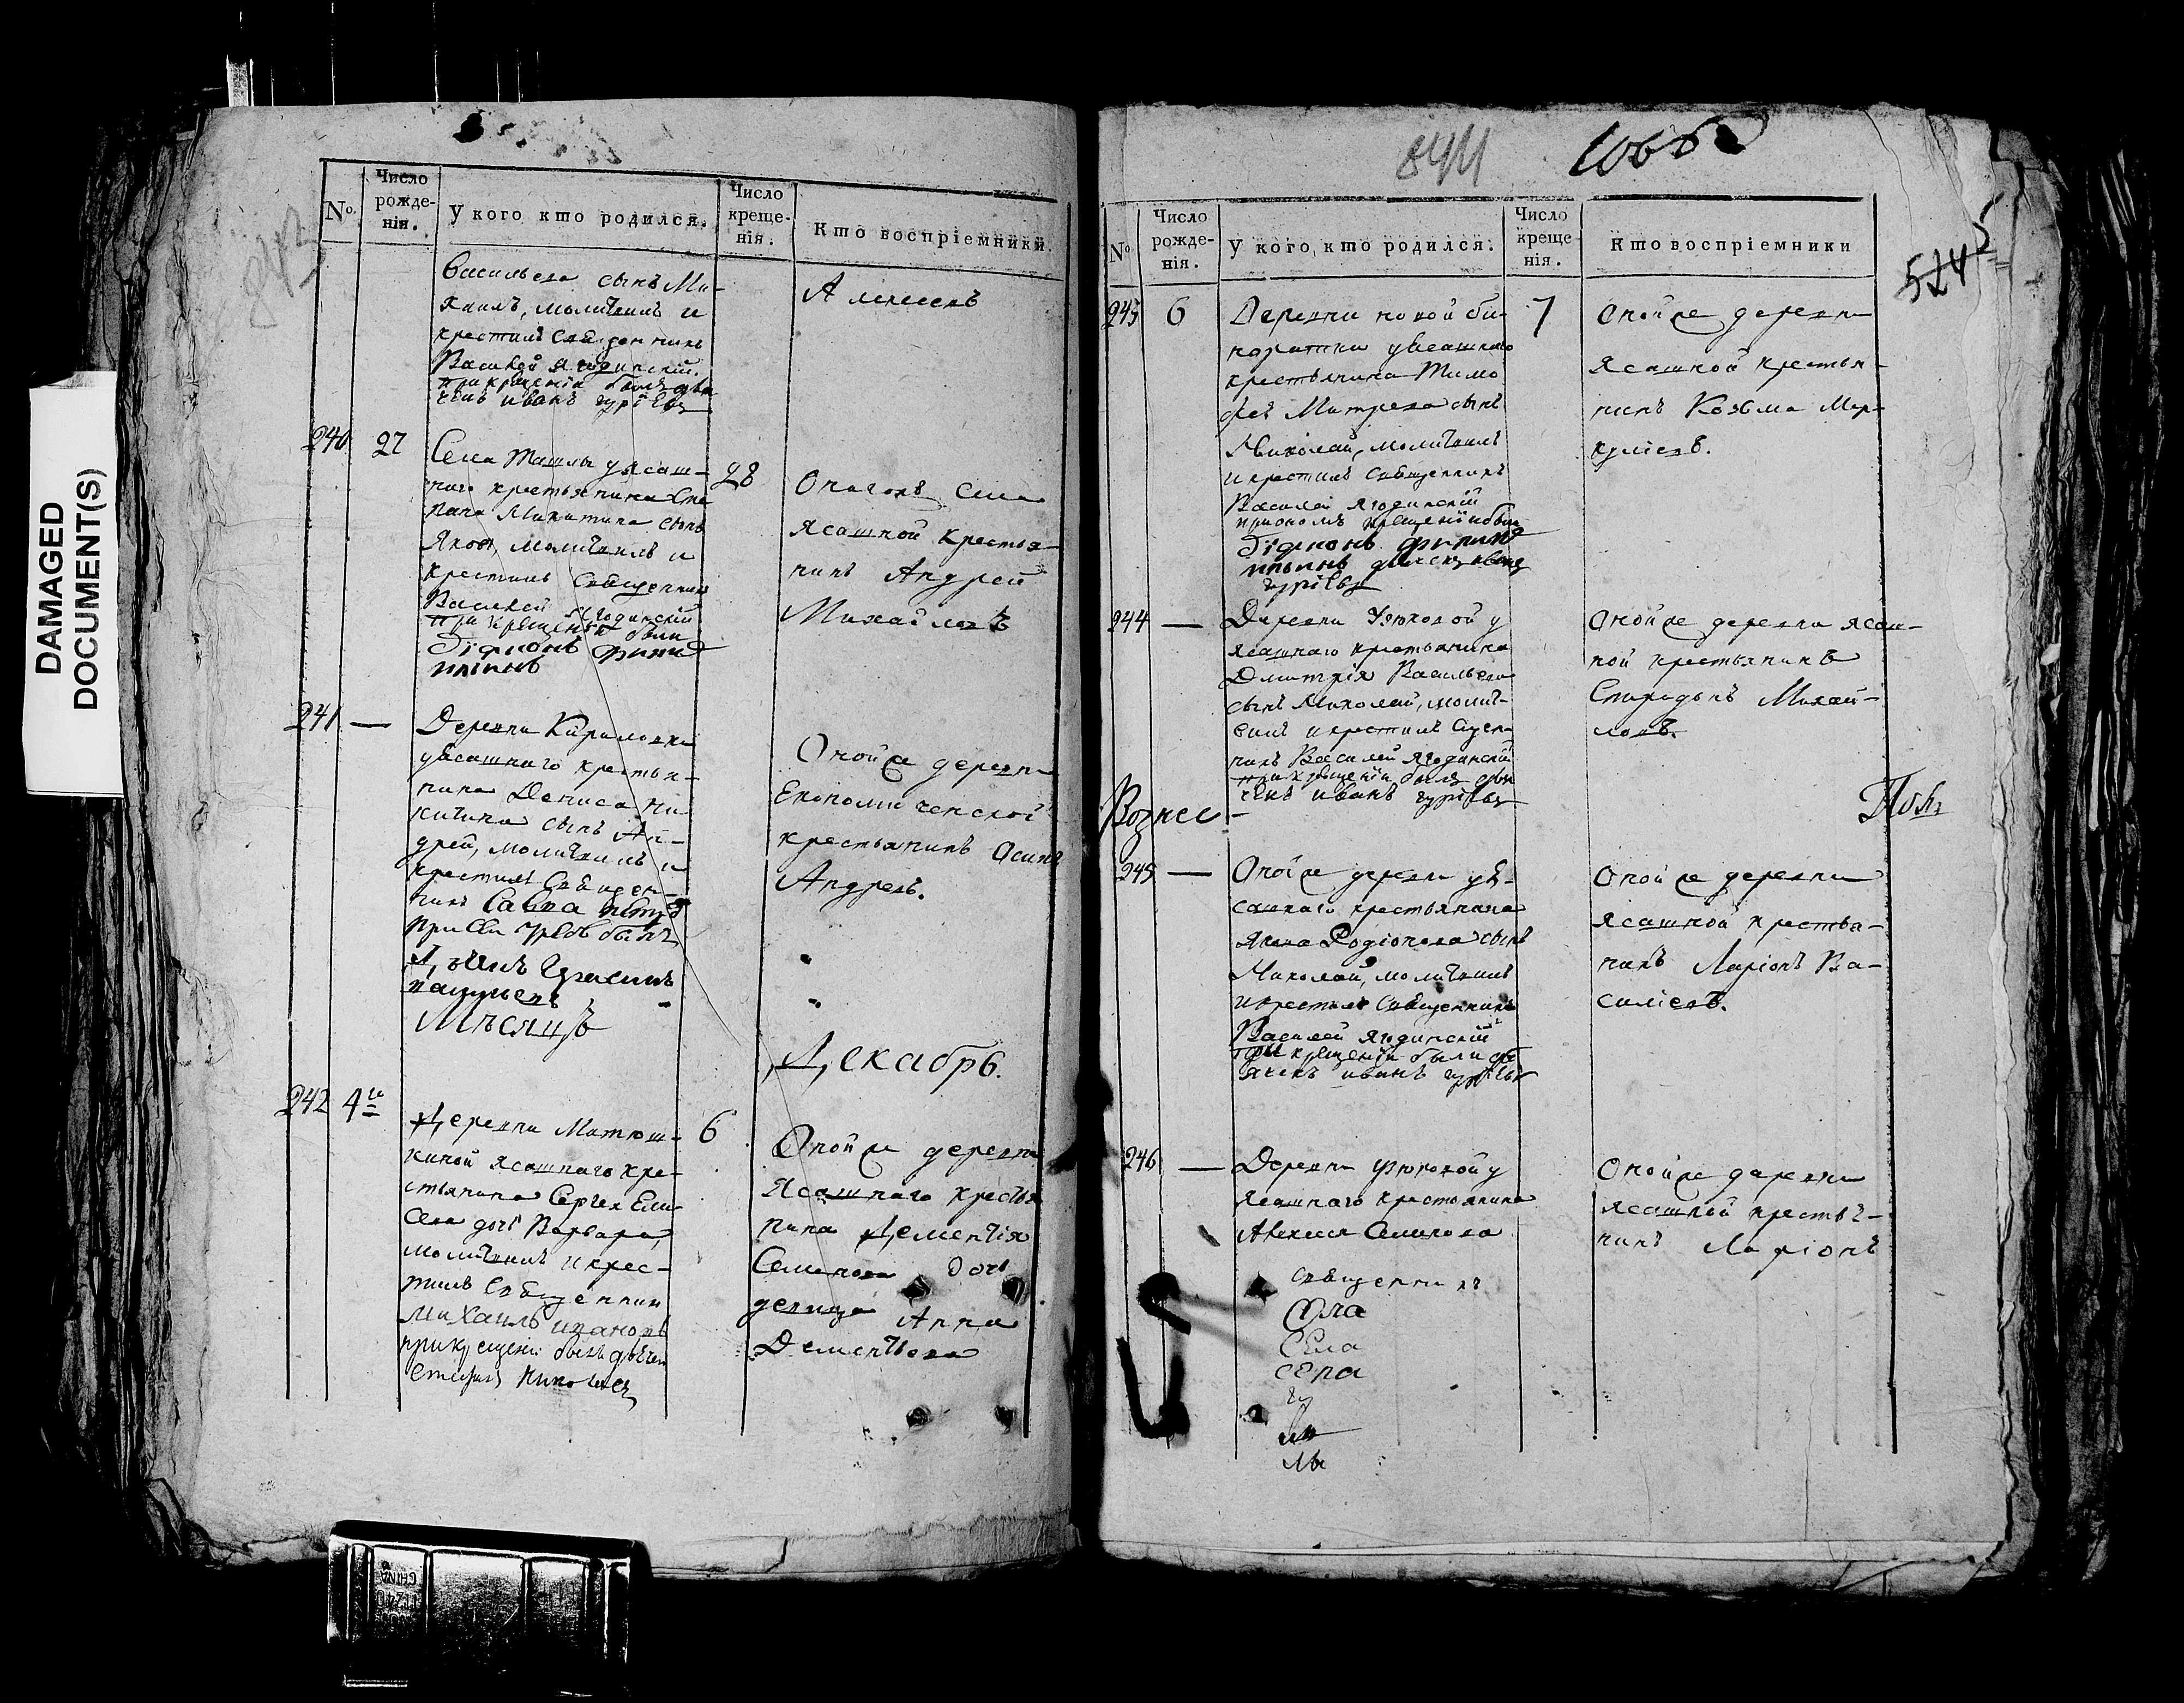 DAMAGED
DOCUMENT(S)
842
№.
Число
рожде-
нія.
У кого кто родился.
Число
креще-
нія.
Кто воспріемники.
Васильева сынъ Ми-
хаилъ, молитвилъ и
крестилъ священникъ
Василей Ягодинскій.
при крещеніи былъ дья
чекъ иванъ гурїевъ
Алексеевъ
240
27
Села Ташлы у ясаш-
наго крестьянина Сте
пана Микитина сынъ
Яковъ, молитвилъ и
крестилъ священникъ
Василей Ягодинскій
при крещеніи были
Дїяконъ филип
28
Онагожъ села
ясашной крестья-
нинъ Андрей
Михайловъ
241 —
Деревни Кириловки
у ясашнаго крестья-
нина Дениса Ни
китина сынъ Ан-
дрей, молитвилъ и
крестилъ священ-
никъ Савва
Онойже деревни
Економической
крестьянинъ Осипъ
Андревъ.
Мѣсяцъ
Декабрь.
242
4го
Деревни Матюш-
киной ясашнаго кре-
стьянина Сергея Ели-
сева дочь Варвара,
молитвилъ и крес-
тилъ Священник
Михаилъ ивановъ
при крещеніи былъ дьячек
6
Онойже деревни
Ясашнаго крестья
нина Дементія
Семенова дочь
девица Анна
Дементьева
844
1066
5245
№
Число
рожде-
нія.
У кого, кто родился.
Число
креще-
нія.
Кто воспріемники
243
6
Деревни новой би-
наратки у ясашнаго
крестьянина Тимо
фея Митрева сынъ
Николай, молитвилъ
и крестилъ священникъ
Василей Ягодинскій
Дїяконъ филип
гурїевъ
7
Онойже деревни
Ясашной крестья-
нинъ Козьма Мер-
куліевъ.
244 —
Деревни Узюковой у
ясашнаго крестьянина
Дмитрія Васильева
сынъ Николай, молит-
вилъ и крестилъ Сщен-
никъ Василей Ягодинскій
при крещеніи былъ дья
чекъ иванъ гурїевъ
Онойже деревни ясаш-
ной крестьянинъ
Спиридонъ Михай-
ловъ.
Вознес-
245 —
Онойже деревни у я-
сашнаго крестьянина
Якова Родіонова сынъ
Николай, молитвилъ
и крестилъ Священникъ
Василей Ягодинскій
при крещеніи были дь
ячекъ иванъ гурїевъ
Онойже деревни
Ясашной крестья-
нинъ Ларіонъ Ва-
силіевъ.
246 —
Деревни Узюковой у
ясашнаго крестьянина
Алексея Семенова
Онойже деревни
ясашной крестья-
нинъ Ларіонъ
священникъ
Села